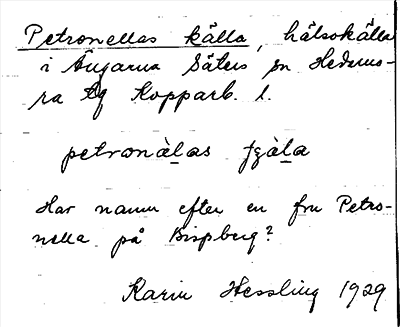 Petronellas källa, hälsokälla
i Ängarna Säters sn Hedemo-
ra tg Kopparb. l.
petronàlas ſɡàla
Har namn efter en fru Petro-
nella på Bispberg?
Karin Hessling 1929